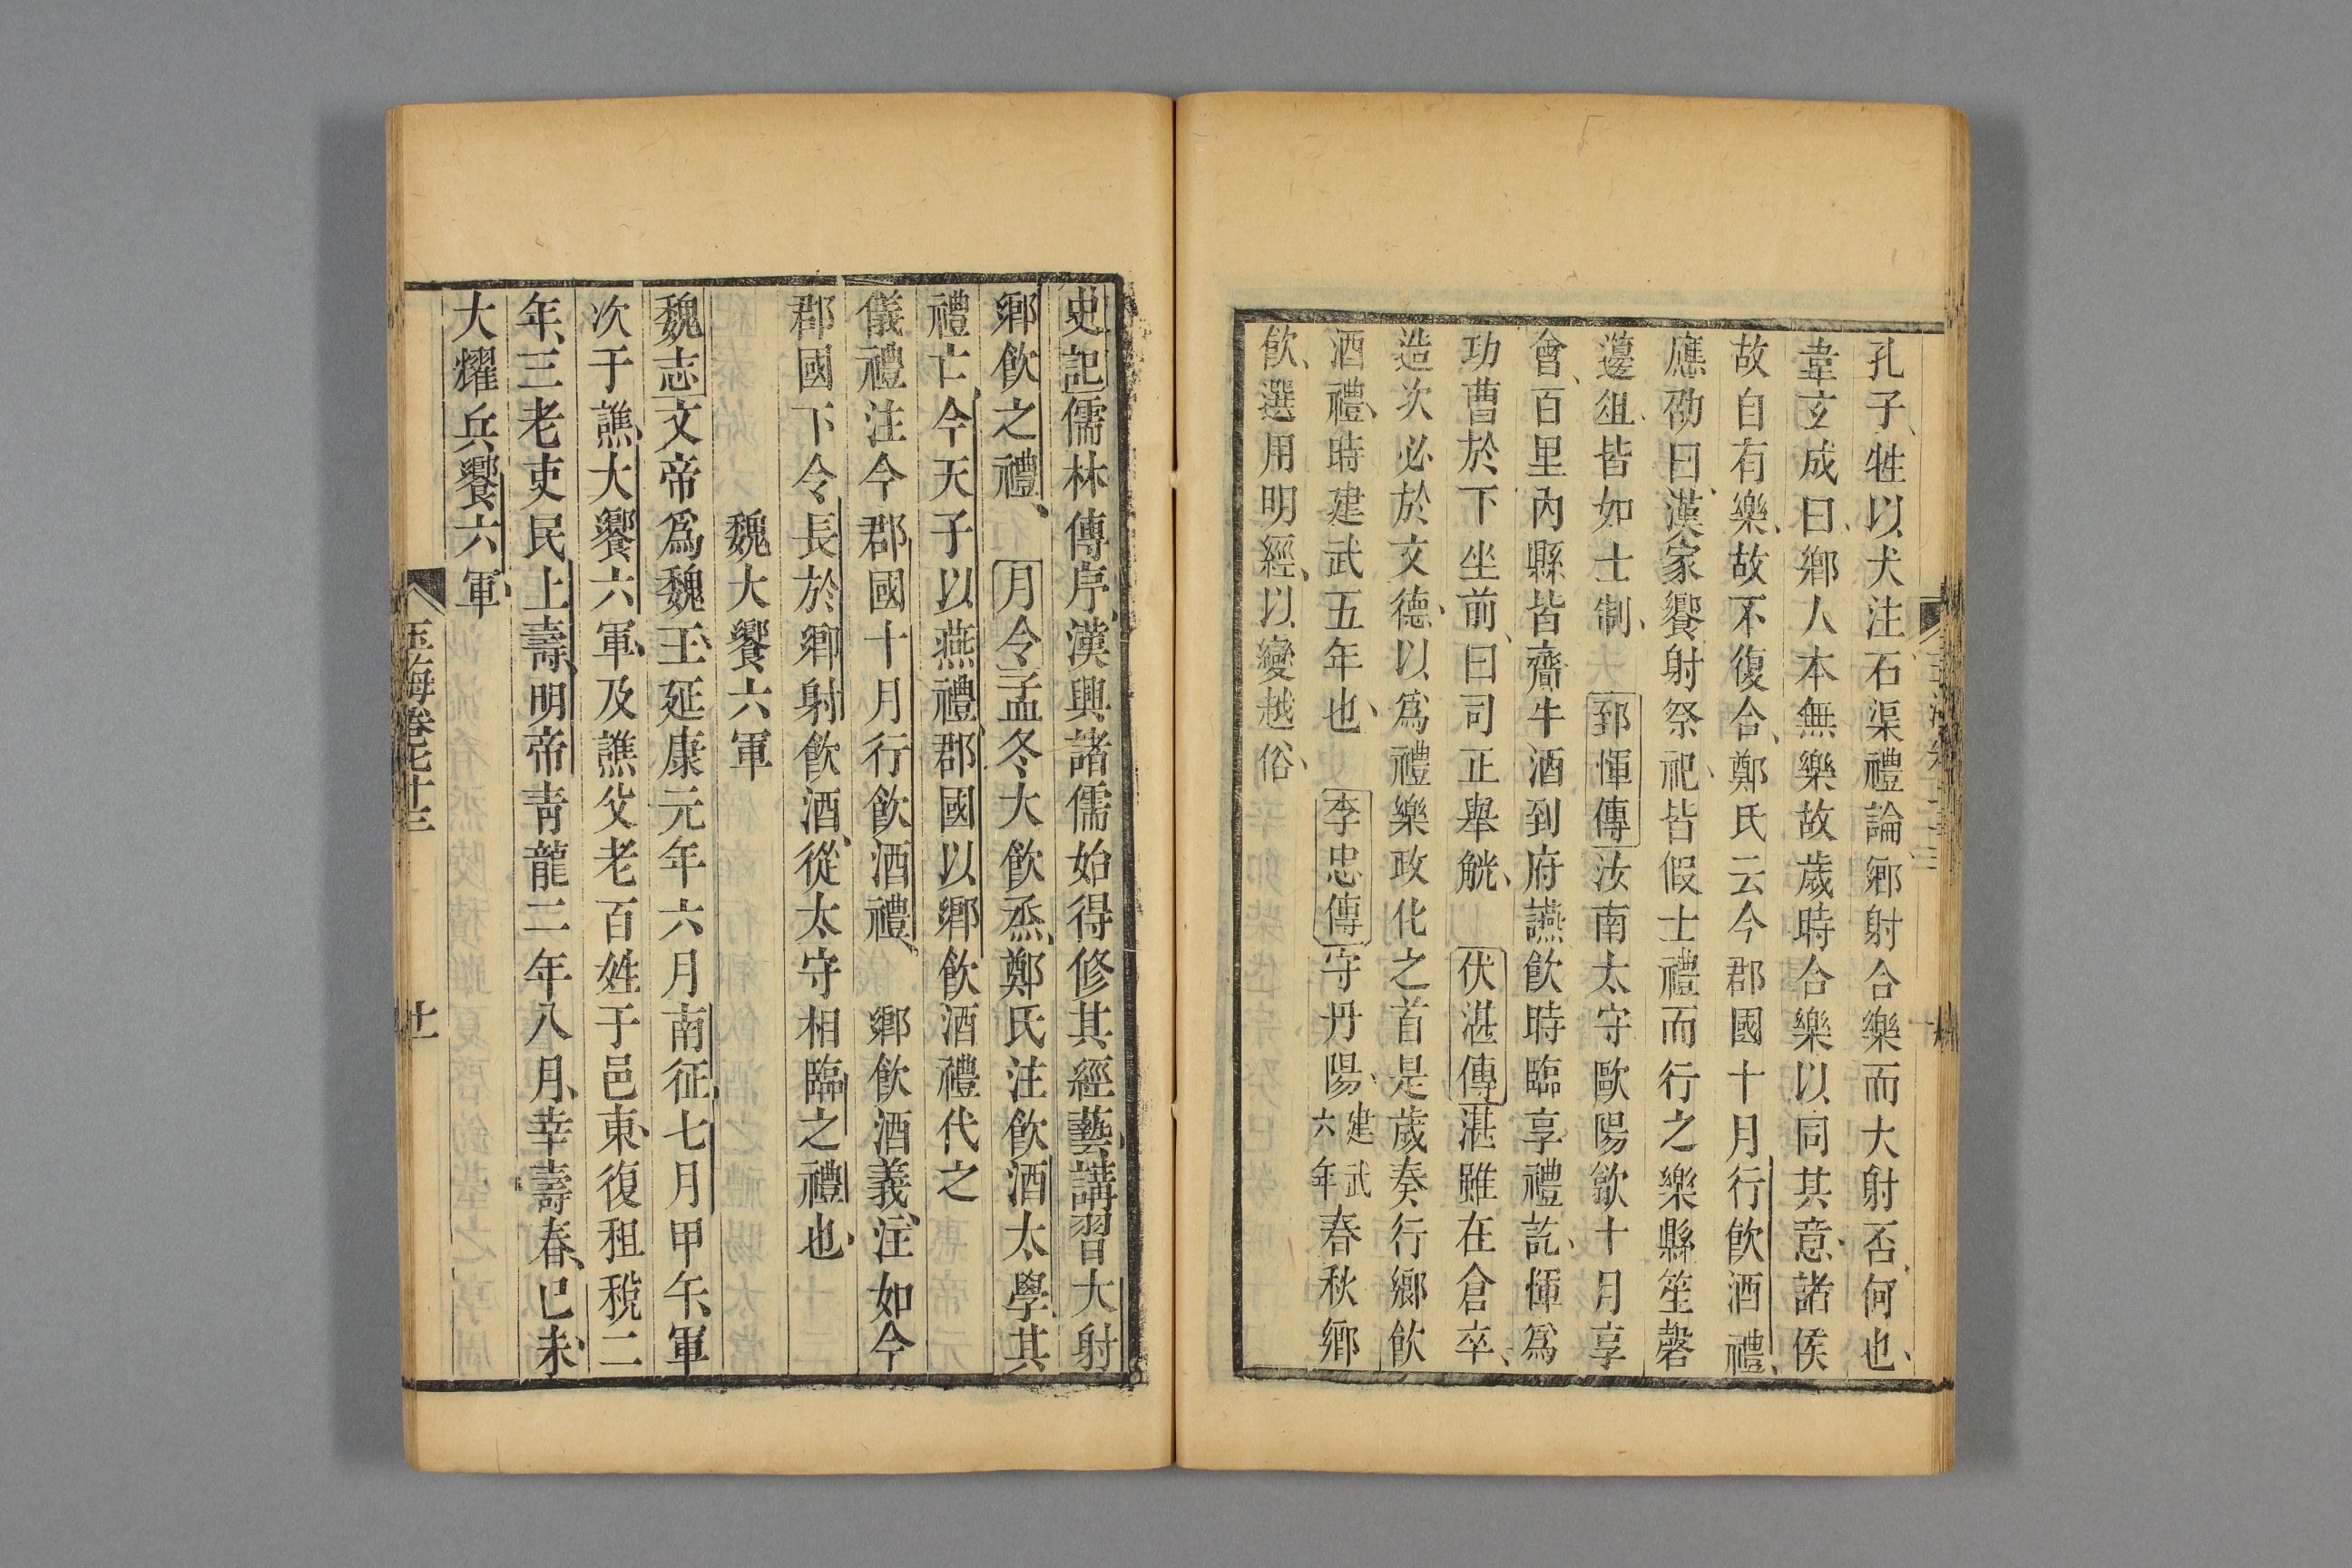 孔子、牲以犬注石渠禮論、鄉射合樂而大射否何也、
韋玄成曰、鄉人本無樂故歲時合樂以同其意、諸侯
故自有樂、故不復合、鄭氏云今郡國十月行飲酒禮、
應劭曰、漢家饗射祭祀、皆假士禮而行之樂縣笙磬
籩俎、皆如士制、　郅惲傳汝南太守歐陽歙十月享
會、百里內縣皆齎牛酒到府讌飲時臨享禮訖、惲為
功曹於下坐前、曰司正舉觥、　伏湛傳湛雖在倉卒、
造次必於文德、以為禮樂政化之首是歲奏行鄉飲
酒禮、時建武五年也、　李忠傳守丹陽、建武六年春秋鄉
飲、選用明經、以變越俗、
史記儒林傳序、漢興諸儒始得修其經藝、講習大射
鄉飲之禮、　月令孟冬大飲烝、鄭氏注飲酒太學、其
禮亡、今天子以燕禮、郡國以鄉飲酒禮代之
儀禮注今郡國十月行飲酒禮、　鄉飲酒義、注如今
郡國下令長於鄉射飲酒、從太守相臨之禮也、
魏大饗六軍
魏志文帝爲魏王、延康元年六月南征、七月甲午、軍
次于譙、大饗六軍、及譙父老百姓于邑東、復租稅二
年、三老吏民上壽、明帝青龍二年八月、幸壽春、已未、
大耀兵饗六軍、
玉海卷七十三
十一